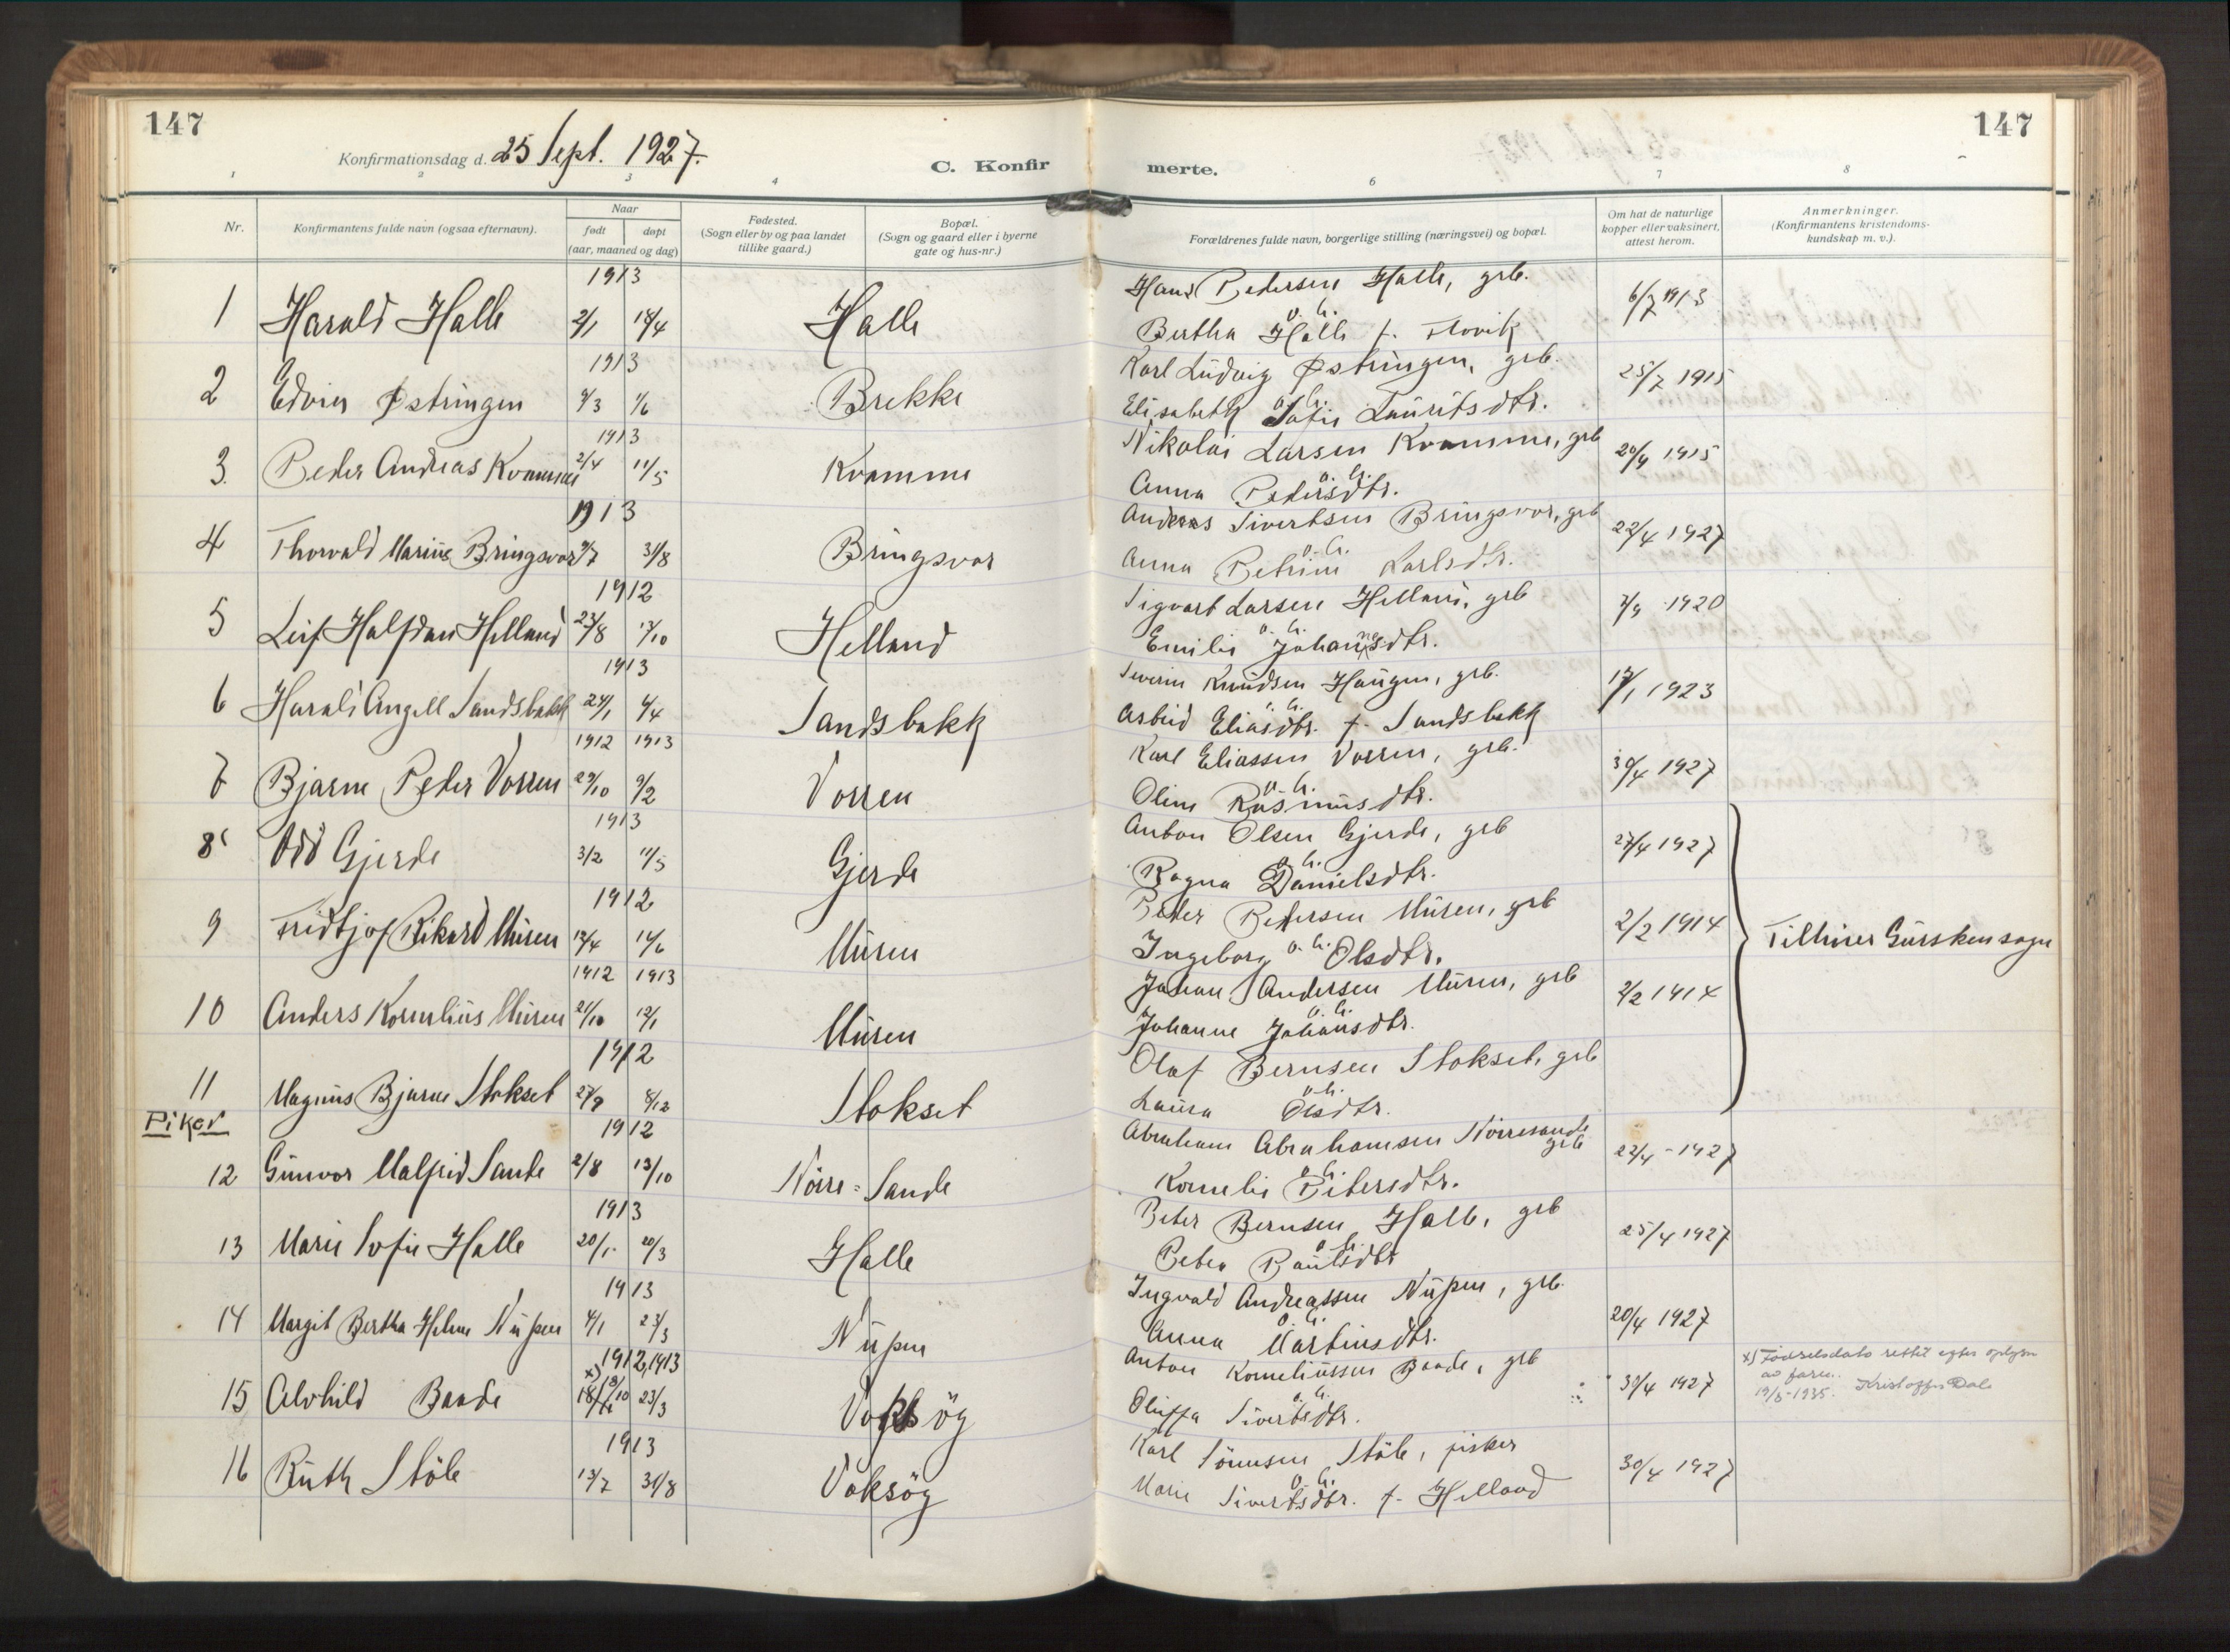 147
147
Konfirmationsdag d. 25 Sept. 1927.
C. Konfir merte.
1 2 3 4 6 7 8
Nr.
Konfirmantens fulde navn (ogsaa efternavn).
Naar
født døpt
(aar, maaned og dag)
Fødested.
(Sogn eller by og paa landet
tillike gaard.)
Bopæl.
(Sogn og gaard eller i byerne
gate og hus-nr.)
Forældrenes fulde navn, borgerlige stilling (næringsvei) og bopæl.
Om hat de naturlige
kopper eller vaksinert,
attest herom.
Anmerkninger.
(Konfirmantens kristendoms-
kundskap m. v.).
1913
1 Harald Halle 2/1 18/4 Halle
Hans Pedersen Halle, grb. 6/7 1913
o. h.
Bertha Halle f. Flovik
1913
2 Edvin Østringen 9/3 1/6 Brekke
Karl Ludvig Østringen, grb. 25/7 1915
o. h.
Elisabeth Sofie Lauritsdtr.
1913
3. Peder Andreas Kvamme 2/4 11/5 Kvamme
Nikolai Larsen Kvamme, grb 20/9 1915
o. h.
Anna Pedersdtr.
1913
4 Thorvald Marius Bringsvor 9/7 31/8 Bringsvor
Andreas Sivertsen Bringsvor, grb 22/4 1927
o. h.
Anna Petrine Karlsdtr.
1912
5 Leif Halfdan Helland 23/8 13/10 Helland
Sigvart Larsen Helland, grb 7/9 1920
o. h.
Emilie Johannesdtr.
1913
6 Harald Angell Sandsbakk 24/1 6/4 Sandsbakk
Severin Knudsen Haugen, grb. 17/1 1923
o. h.
Astrid Eliasdtr. f. Sandsbakk
1912 1913
7 Bjarne Peder Vorren 29/10 9/2 Vorren
Karl Eliassen Vorren, grb. 30/4 1927
o. h.
Oline Rasmusdtr.
1913
8 Odd Gjerde 3/2 11/5 Gjerde
Anton Olsen Gjerde, grb 27/4 1927
o. h.
Ragna Danielsdtr.
1912
9 Fridtjof Rikard Muren 12/4 16/6 Muren
Peder Pedersen Muren, grb 2/2 1914
Tilhører Gursken sogn
Ingeborg o. h. Olsdtr.
1912 1913
10 Anders Kornelius Muren 21/10 12/1 Muren
Johan Andersen Muren, grb 2/2 1914
o. h.
Johanne Johansdtr.
1912
11 Magnus Bjarne Stokset 27/9 8/12 Stokset
Olaf Bernsen Stokset, grb
o. h.
Laura Olsdtr.
Piker
1912
12 Gunvor Malfrid Sande 2/8 13/10 Nörre-Sande
Abraham Abrahamsen Nörresande
grb 22/4 - 1927
o. h.
Kornelie Petersdtr.
1913
13 Marie Sofie Halle 20/1. 20/3 Halle
Peter Bernsen Halle, grb 25/4 1927
o. h.
Petra Paulsdtr
1913
14 Margit Bertha Helene Nupen 4/1 23/3 Nupen
Ingvald Andreassen Nupen, grb. 20/4 1927
o. h.
Anna Martinsdtr.
1912, 1913
15 Alvhild Baade x) 18/10 23/3 Voksög
Anton Korneliussen Baade, grb 30/4 1927
o. h.
Oluffa Sivertsdtr.
x) Födselsdato rettet efter oplysn
av faren.
19/5-1935. Kristoffer Dale
1913
16 Ruth Stöle 13/7 31/8 Voksög
Karl Sörensen Stöle, fisker 30/4 1927
o. h.
Marie Sivertsdtr. f. Helland